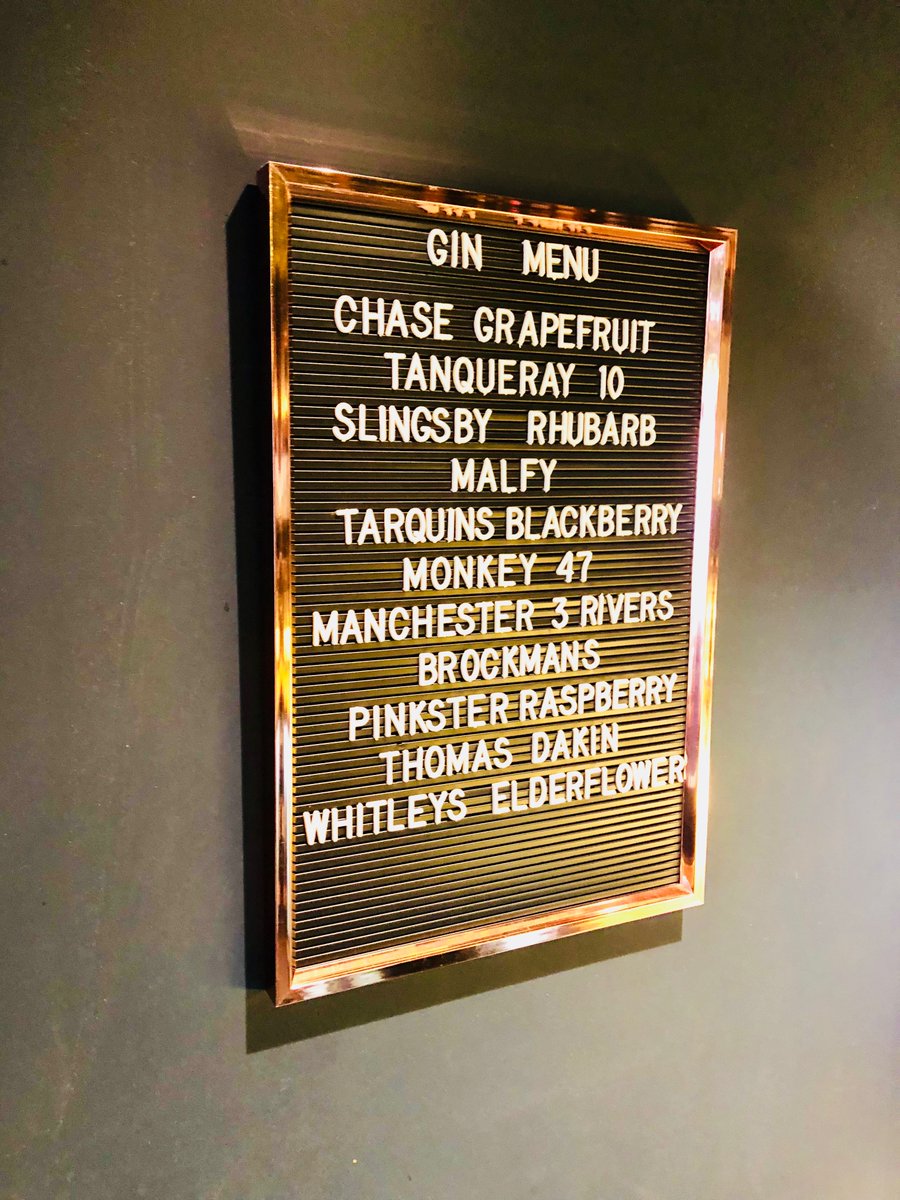 GIN MENU
CHASE GRAPEFRUIT
TANQUERAY 10
SLINGSBY RHUBARB
MALFY
TARQUINS BLACKBERRY
MONKEY 47
MANCHESTER 3 RIVERS
BROCKMANS
PINKSTER RASPBERRY
THOMAS DAKIN
WHITLEYS ELDERFLOWER